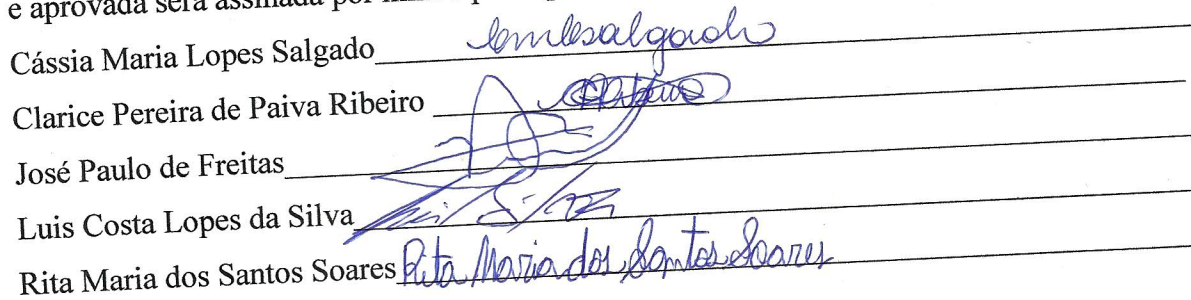 e aprovada será assinada por
Cássia Maria Lopes Salgado cmlsalgado
Clarice Pereira de Paiva Ribeiro CPRibeiro
José Paulo de Freitas
Luis Costa Lopes da Silva Luis Silva
Rita Maria dos Santos Soares Rita Maria dos Santos Soares